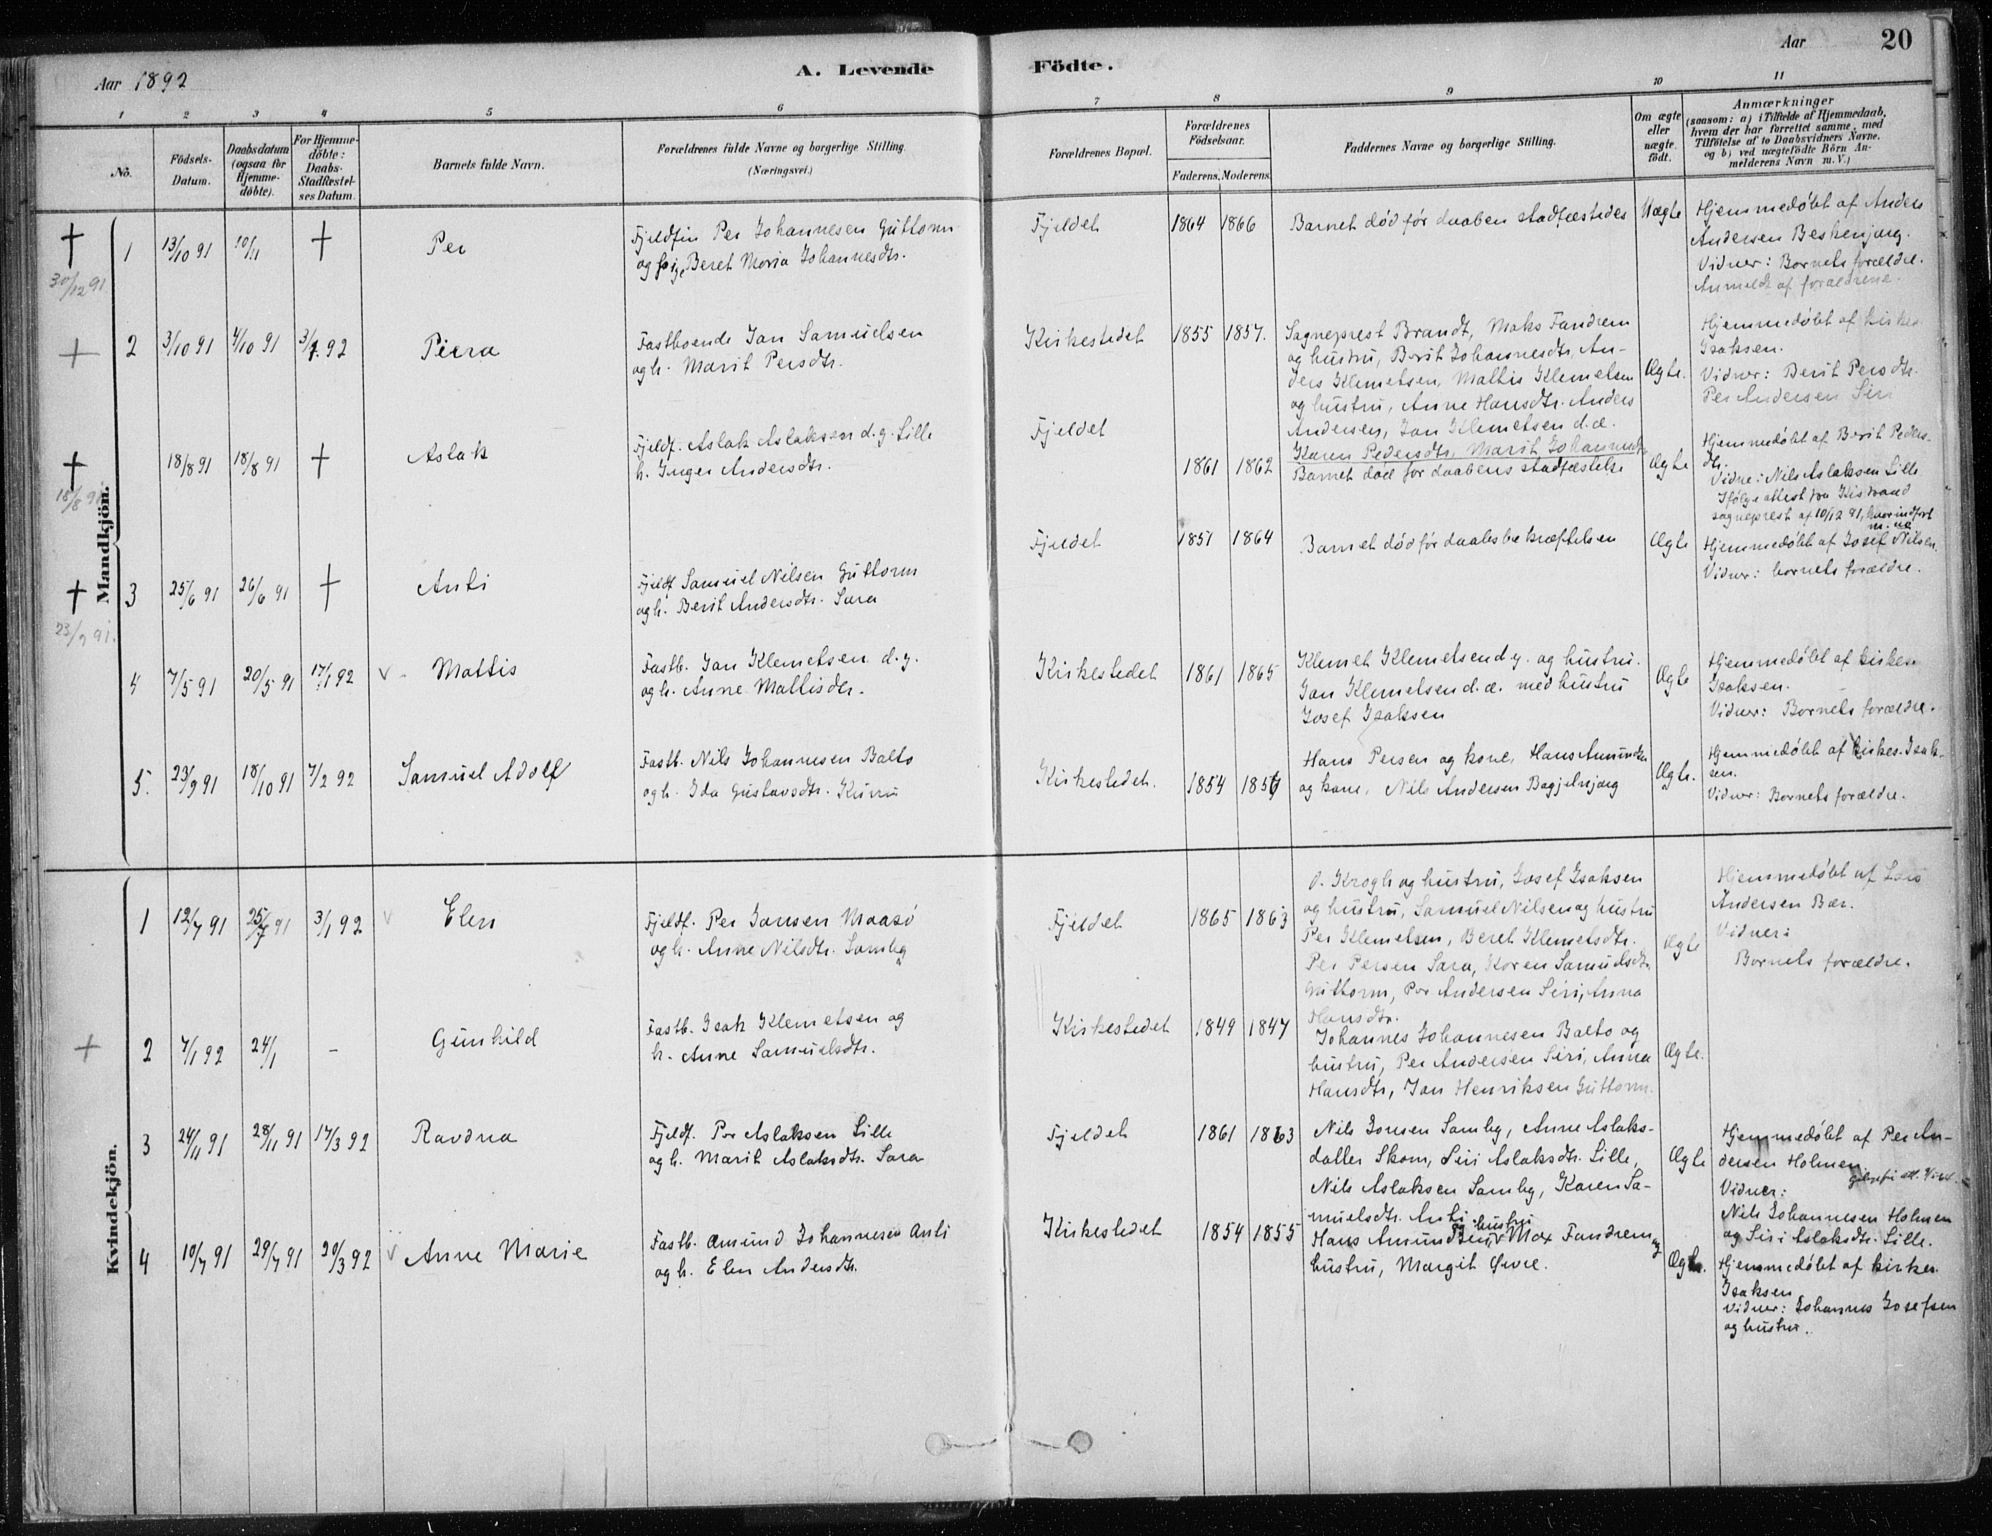 Aar 1892
A. Levende Födte.
Aar
20
1 2 3 4 5 6 7 8 9 10 11
No.
Födsels-Datum.
Daabsdatum (ogsaa for Hjemmedöbte).
For Hjemmedöbte: Daabs-Stadfæstelses Datum.
Barnets fulde Navn.
Forældrenes fulde Navne og borgerlige Stilling.
(Næringsvei.)
Forældrenes Bopæl.
Forældrenes Födselsaar.
Faderens. Moderens.
Faddernes Navne og borgerlige Stilling.
Om ægte eller uægte födt.
Anmærkninger
(saasom: a) i Tilfælde af Hjemmedaab,
hvem der har forrettet samme, med
Tilföielse af to Daabsvidners Navne,
og b) ved uægtefödte Börn An-
melderens Navn m. V.)
Mandkjön.
† 30/12 91
1 13/10 91 10/11 † Per
Fjeldfin Per Johannesen Guttorm
og pige Beret Maria Johannesdtr.
Fjeldet 1864 1866
Barnet død før daaben stadfæstedes
Uægte
Hjemmedøbt af Anders
Andersen Beskenjarg.
Vidner: Barnets forældre.
Anmeldt af forældrene.
+
2 3/10 91 4/10 91 3/1 92 Piera
Fastboende Jan Samuelsen
og h. Marit Persdtr.
Kirkestedet 1855 1857.
Sogneprest Brandt, Maks Fandrem
og hustru, Berit Johannesdtr, An-
ders Klemetsen, Mattis Klemetsen
og hustru, Anne Hansdtr. Anders
Andersen, Jan Klemetsen d.æ.
Karen Pedersdtr, Marit Johannesdtr
Ægte.
Hjemmedøbt af kirkes.
Isaksen.
Vidner: Berit Persdtr.
Per Andersen Siri
† 18/8 91
18/8 91 18/8 91 † Aslak
Fjeldf. Aslak Aslaksen d.y. Lille
h. Inger Andersdtr.
Fjeldet
1861 1862
Barnet død før daabens stadfæstelse
Ægte
Hjemmedøbt af Berit Peders-
dtr.
Vidne: Nils Aslaksen Lille
Ifølge attest fra Kistrand
sogneprest af 10/12 91, her indført
† 23/9 91.
3 25/6 91 26/6 91 † Anti
Fjeldf Samuel Nilsen Guttorm
og h. Berit Andersdtr. Sara
Fjeldet 1851 1864
Barnet død før daabsbekræftelsen
Ægte
Hjemmedøbt af Josef Nilsen.
Vidner: barnets forældre.
4 7/5 91 20/5 91 17/1 92 v. Mattis
Fastb. Jan Klemetsen d.y.
og h. Anne Mattisdtr.
Kirkestedet 1861 1865
Klemet Klemetsen d.y. og hustru.
Jan Klemetsen d.æ. med hustru
Josef Isaksen
Ægte
Hjemmedøbt af kirkes.
Isaksen.
Vidner: Barnets forældre.
5. 23/9 91 18/10 91 7/2 92 Samuel Adolf
Fastb. Nils Johannesen Balto
og h. Ida Gustavsdtr. Kunu
Kirkestedet. 1854 1856
Hans Persen og kone, Hans Amundsen
og kone, Nils Andersen Bagjelnjarg
Ægte.
Hjemmedøbt af kirkes. Isak-
sen.
Vidner: Barnets forældre.
Kvindekjön.
1 12/7 91 25/7 91 3/1 92 v Elen
Fjeldf. Per Jansen Maasø
og h. Anne Nilsdtr. Somby
Fjeldet 1865 1863
O. Krogh og hustru, Josef Isaksen
og hustru, Samuel Nilsen og hustru
Per Klemetsen, Beret Klemetsdtr.
Per Persen Sara, Karen Samuelsdtr.
Guttorm, Per Andersen Siri, Anna
Hansdtr.
Ægte
Hjemmedøbt af Lars
Andersen Bær.
Vidner:
Barnets forældre.
+
2 7/1 92 24/1 - Gunhild
Fastb. Isak Klemetsen og
h. Anne Samuelsdtr.
Kirkestedet 1849 1847
Johannes Johannesen Balto og
hustru, Per Andersen Siri, Anna
Hansdtr, Jan Henriksen Guttorm.
Ægte.
3 24/11 91 28/11 91 17/3 92 Ravdna
Fjeldf. Per Aslaksen Lille
og h. Marit Aslaksdtr. Sara
Fjeldet 1861 1863
Nils Jonsen Somby, Anne Aslaks-
datter Skom, Siri Aslaksdtr. Lille,
Nils Aslaksen Somby, Karen Sa-
muelsdtr. Anti
Ægte
Hjemmedøbt af Per An-
dersen Holmen
Vidner:
Nils Johannesen Holmen
og Siri Aslaksdtr. Lille.
4 10/7 91 29/7 91 20/3 92 v Anne Marie
Fastb. Amund Johannesen Anti
og h. Elen Andersdtr.
Kirkestedet 1854 1855
Hans Amundsen og hustru, Max Fandrem og
hustru, Margit Øvre.
Ægte.
Hjemmedøbt af kirkes.
Isaksen
Vidner: Johannes Josefsen
og hustru.